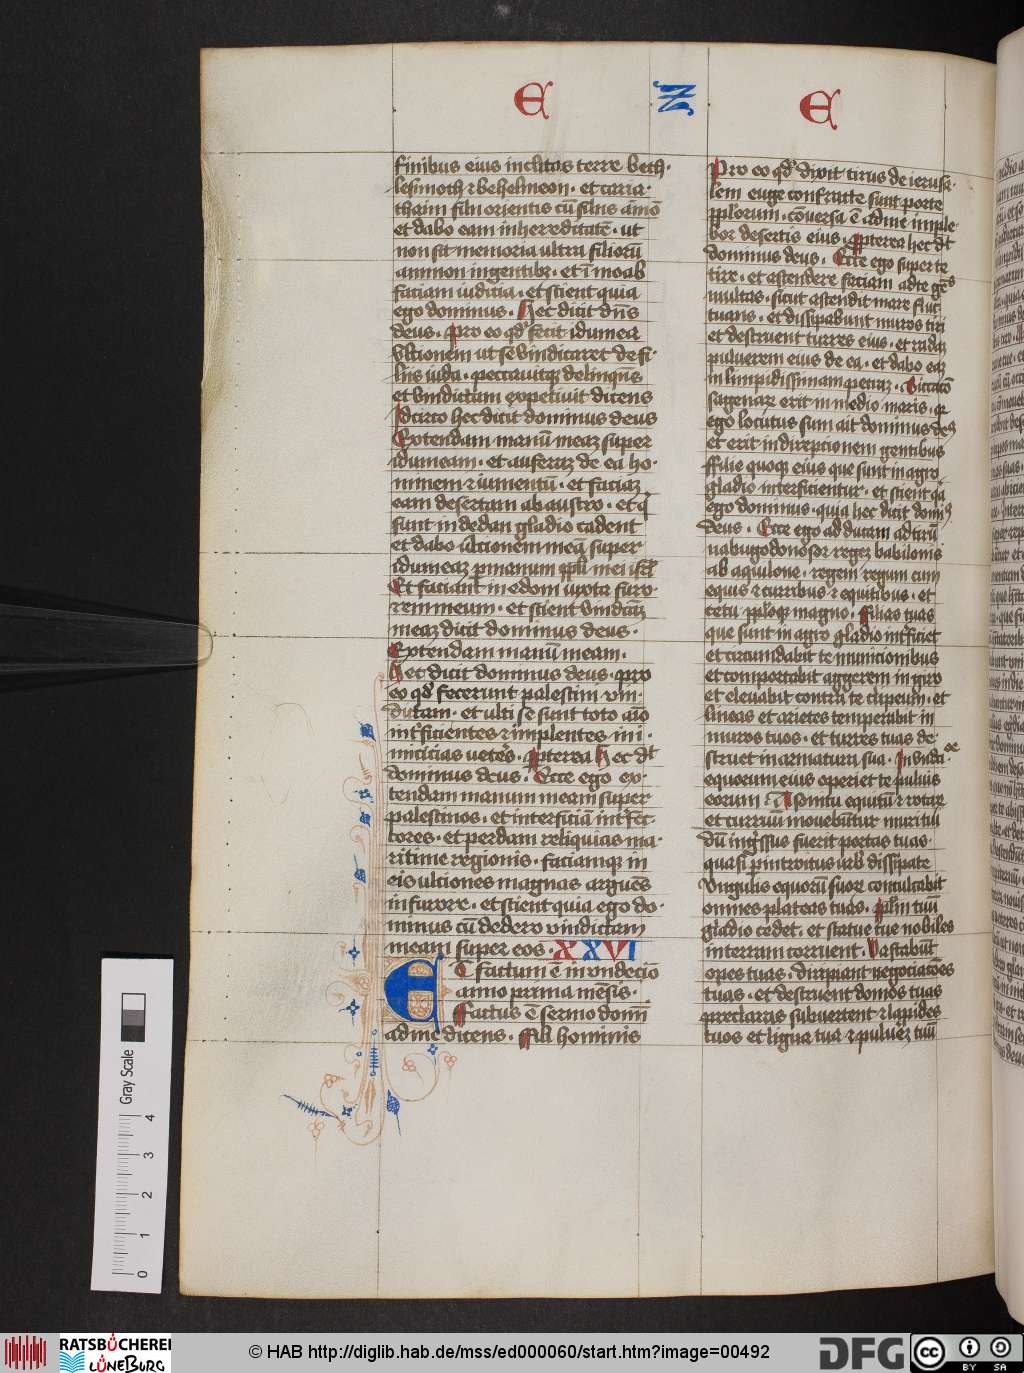 E Z E
finibus eius inclitas terre beth·
lesimoth ⁊ behelmeon· et caria·
thaim filiis orientis cū filiis amō
et dabo eam in hereditatē· ut
non sit memoria ultra filiorū
ammon in gentibꝫ· et ī moab
faciam iudicia· et scient quia
ego dominus· Hec dicit dn̄s
deus· Pro eo qd' fecit idumea
vltionem ut se vindicaret de fi·
liis iuda· peccauitqꝫ delinquēs
et vindictam expetiuit dicens
Idcirco hec dicit dominus deus
Extendam manū meaꝫ super
idumeam· et auferaꝫ de ea ho·
minem ⁊ iumentū· et faciaꝫ
eam desertam ab austro· et q̄
sunt in dedan gladio cadent
et dabo ultionem meā super
idumeaꝫ ꝑ manum ppl'i mei isrl'
Et facient in edom iuxta furo·
rem meum· et scient vindictā
meaꝫ dicit dominus deus·
Extendam manū meam·
Hec dicit dominus deus· pro
eo qd' fecerunt palestini vin·
dictam· et ulti se sunt toto aīo
int'ficientes ⁊ implentes ini·
micicias veteres· Ppterea Hec dt'
dominus deus· Ecce ego ex·
tendam manum meam super
palestinos· et interficiā int'fec·
tores· et perdam reliquias ma·
ritime regionis· faciamqꝫ in
eis ulciones magnas arguēs
in furore· et scient quia ego do·
minus cū dedero vindictam
meam super eos· XXVI
Et factum ē in vndecio
anno prima mēsis·
Factus ē sermo domī
ad me dicens· Fili hominis
Pro eo qd' dixit tirus de ierusa·
lem euge confracte sunt porte
pplorum· cōuersa ē ad me imple·
bor desertis eius· Ppterea hec dt'
dominus deus· Ecce ego super te
tire· et ascendere faciam ad te gētes
multas· sicut ascendit mare fluc
tuans· et dissipabunt muros tiri
et destruent turres eius· et radaꝫ
puluerem eius de ea· et dabo eaꝫ
in limpidissimam petraꝫ· Siccatō
sagenaꝝ erit in medio maris· qꝛ
ego locutus sum ait dominus deꝰ
et erit in direptionem gentibus
ffilie quoqꝫ eius que sunt in agro
gladio interficientur· et scient qa
ego dominus· quia hec dicit domiꝰ
deus· Ecce ego adducam ad tirū
nabugodonosor regeꝫ babilonis
ab aquilone· regem regum cum
equis ⁊ curribus ⁊ equitibus· et
cetu ppl'oqꝫ magno· Filias tuas
que sunt in agro gladio int'ficiet
et circumdabit te municionibus
et comportabit aggerem in giro
et eleuabit contra te clipeum· et
lineas et arietes temperabit in
muros tuos· et turres tuas de·
struet in armatura sua· Inundacioe
equorum eius operiet te puluis
eorum A sonitu equitū ⁊ rotaꝝ
et curruū mouebūtur muri tui
dū ingressus fuerit portas tuas·
quasi ꝑ introitus urb' dissipate
Vngulis equorū suoꝝ conculcabit
omnes plateas tuas· pplm̄ tuū
gladio cedet· et statue tue nobiles
in terram corruent· Vastabūt
opes tuas· diripiant negociatōes
tuas· et destruent domos tuas
preclaras subuertent ⁊ lapides
tuos et ligna tua ⁊ pulueꝝ tuū
Gray Scale
0 1 2 3 4
RATSBÜCHEREI
LÜNEBURG
© HAB http://diglib.hab.de/mss/ed000060/start.htm?image=00492
DFG
cc BY SA